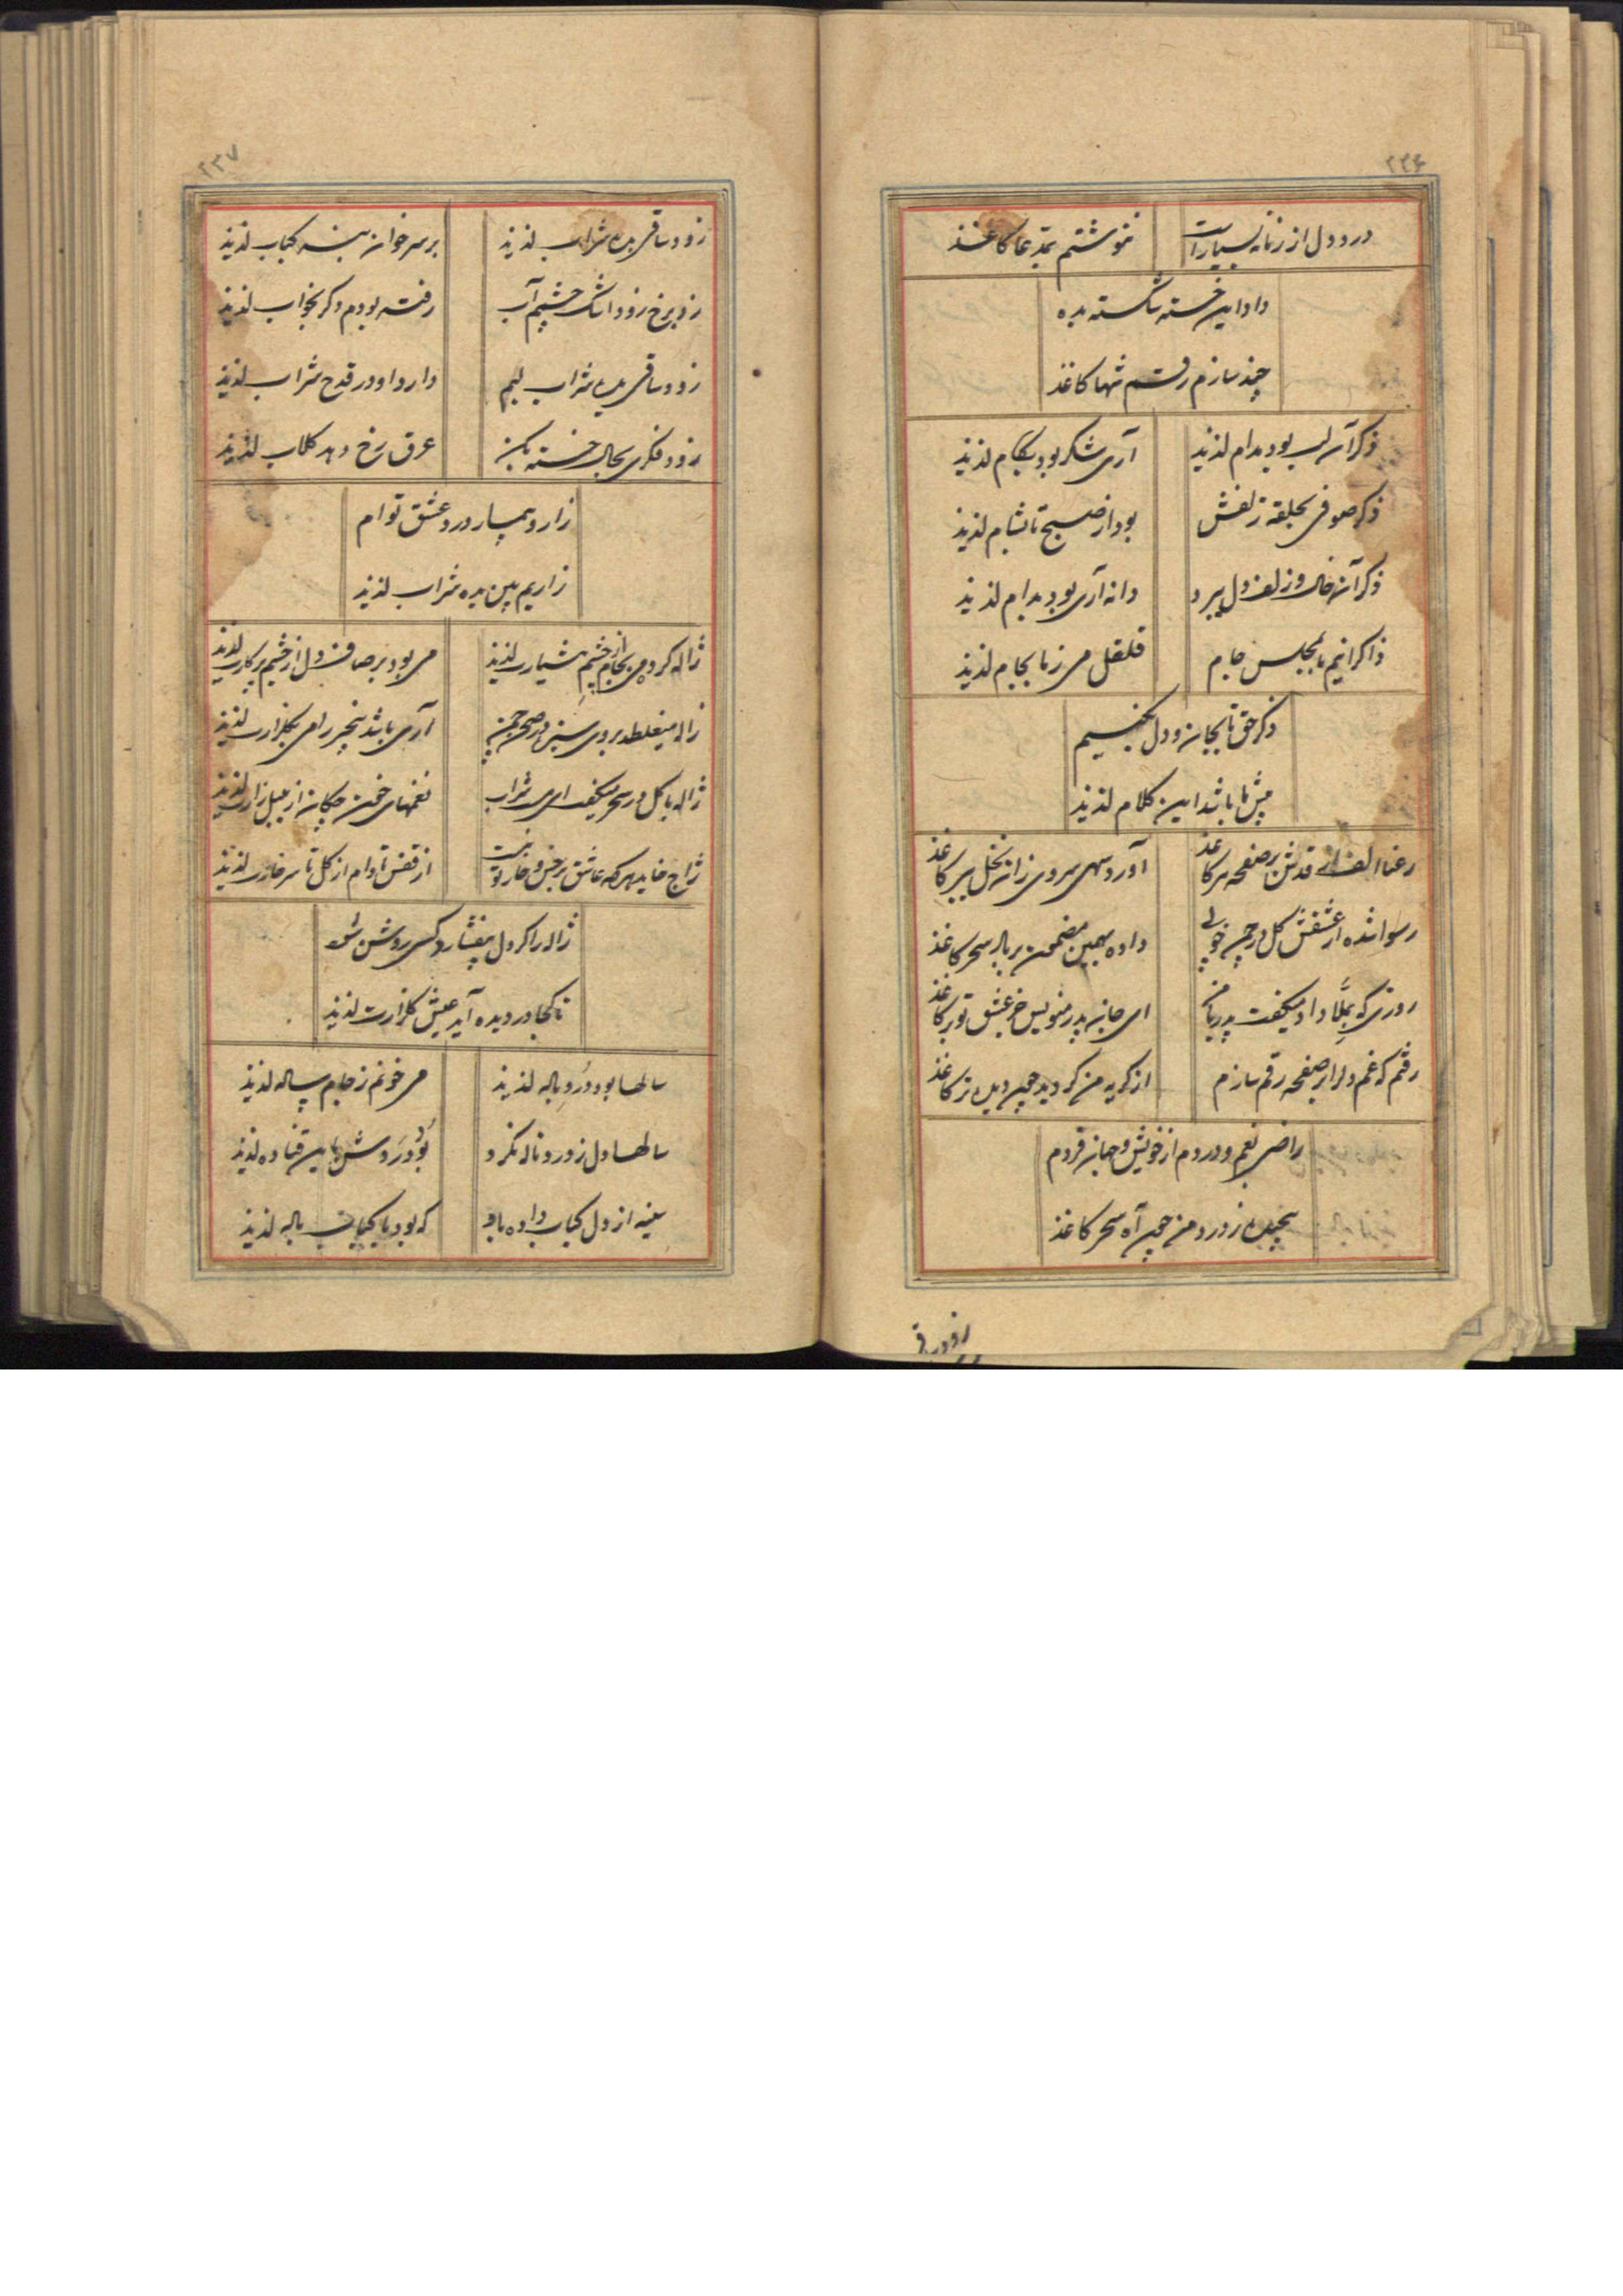 ۲۳۶
درد دل از زمانه بسیار است
ننوشتم بمدعا کاغذ
داد این خسته شکسته بده
چند سازم رقم شها کاغذ
ذکر آن لب بود مدام لذیذ
آری شکر بود بکام لذیذ
ذکر صوفی بحلقه زلفش
بود از صبح تا بشام لذیذ
ذکر آن خال و زلف دل ببرد
دانه آری بود بدام لذیذ
ذاکرانیم ما بمجلس جام
قلقل می ز ما بجام لذیذ
ذکر حق تا بجان و دل بکنیم
پیش ما باشد این کلام لذیذ
رعنا الف قدش بر صفحه سر کاغذ
آورد سهی سروی زان نخل ببر کاغذ
رسوا شده از عشقش گل در چمن خوبی
داده بهمین مضمون بر باد سحر کاغذ
روزی که بملا داد میگفت پدر با من
ای جان پدر منویس جز عشق تو بر کاغذ
رقتم که غم دل را بر صفحه رقم سازم
از گریه من گردید چون دیده تر کاغذ
راضی بغم و دردم از خویش و جهان فردم
پیچیده ز درد من چون آه سحر کاغذ
زود ساقی
۲۳۷
زود ساقی بده شراب لذیذ
بر سر خوان بنه کباب لذیذ
زد برخ زود اشک چشم آب
رفته بودم دگر بخواب لذیذ
زود ساقی بده شراب لبم
دارد او در قدح شراب لذیذ
زود فکری بحال خسته بکن
عرق رخ دهد گلاب لذیذ
زار و بیمار درد عشق توام
زاریم بین بده شراب لذیذ
ژاله کرده می بجام از چشم هشیارت لذیذ
می بود بر صاف دل از چشم پرکارت لذیذ
ژاله میغلطد بروی سبزه در صحن چمن
آری باشد سحر راهی بگلزارت لذیذ
ژاله با گل در سحر میگفت ای مست شراب
نغمهای خون چکان از بلبل زارت لذیذ
ژاج خاید هر که عاشق بر خس و خار تو نیست
از قفس تا دام از گل تا سر خارت لذیذ
ژاله را گر دل بیفشارد کسی روشن شود
تا کجا در دیده آید عیش گلزارت لذیذ
سالها بود درد باله لذیذ
می خونم ز جام پیاله لذیذ
سالها دل ز درد ناله نکرد
سینه از دل کباب داده باو
که بود با کباب باله لذیذ